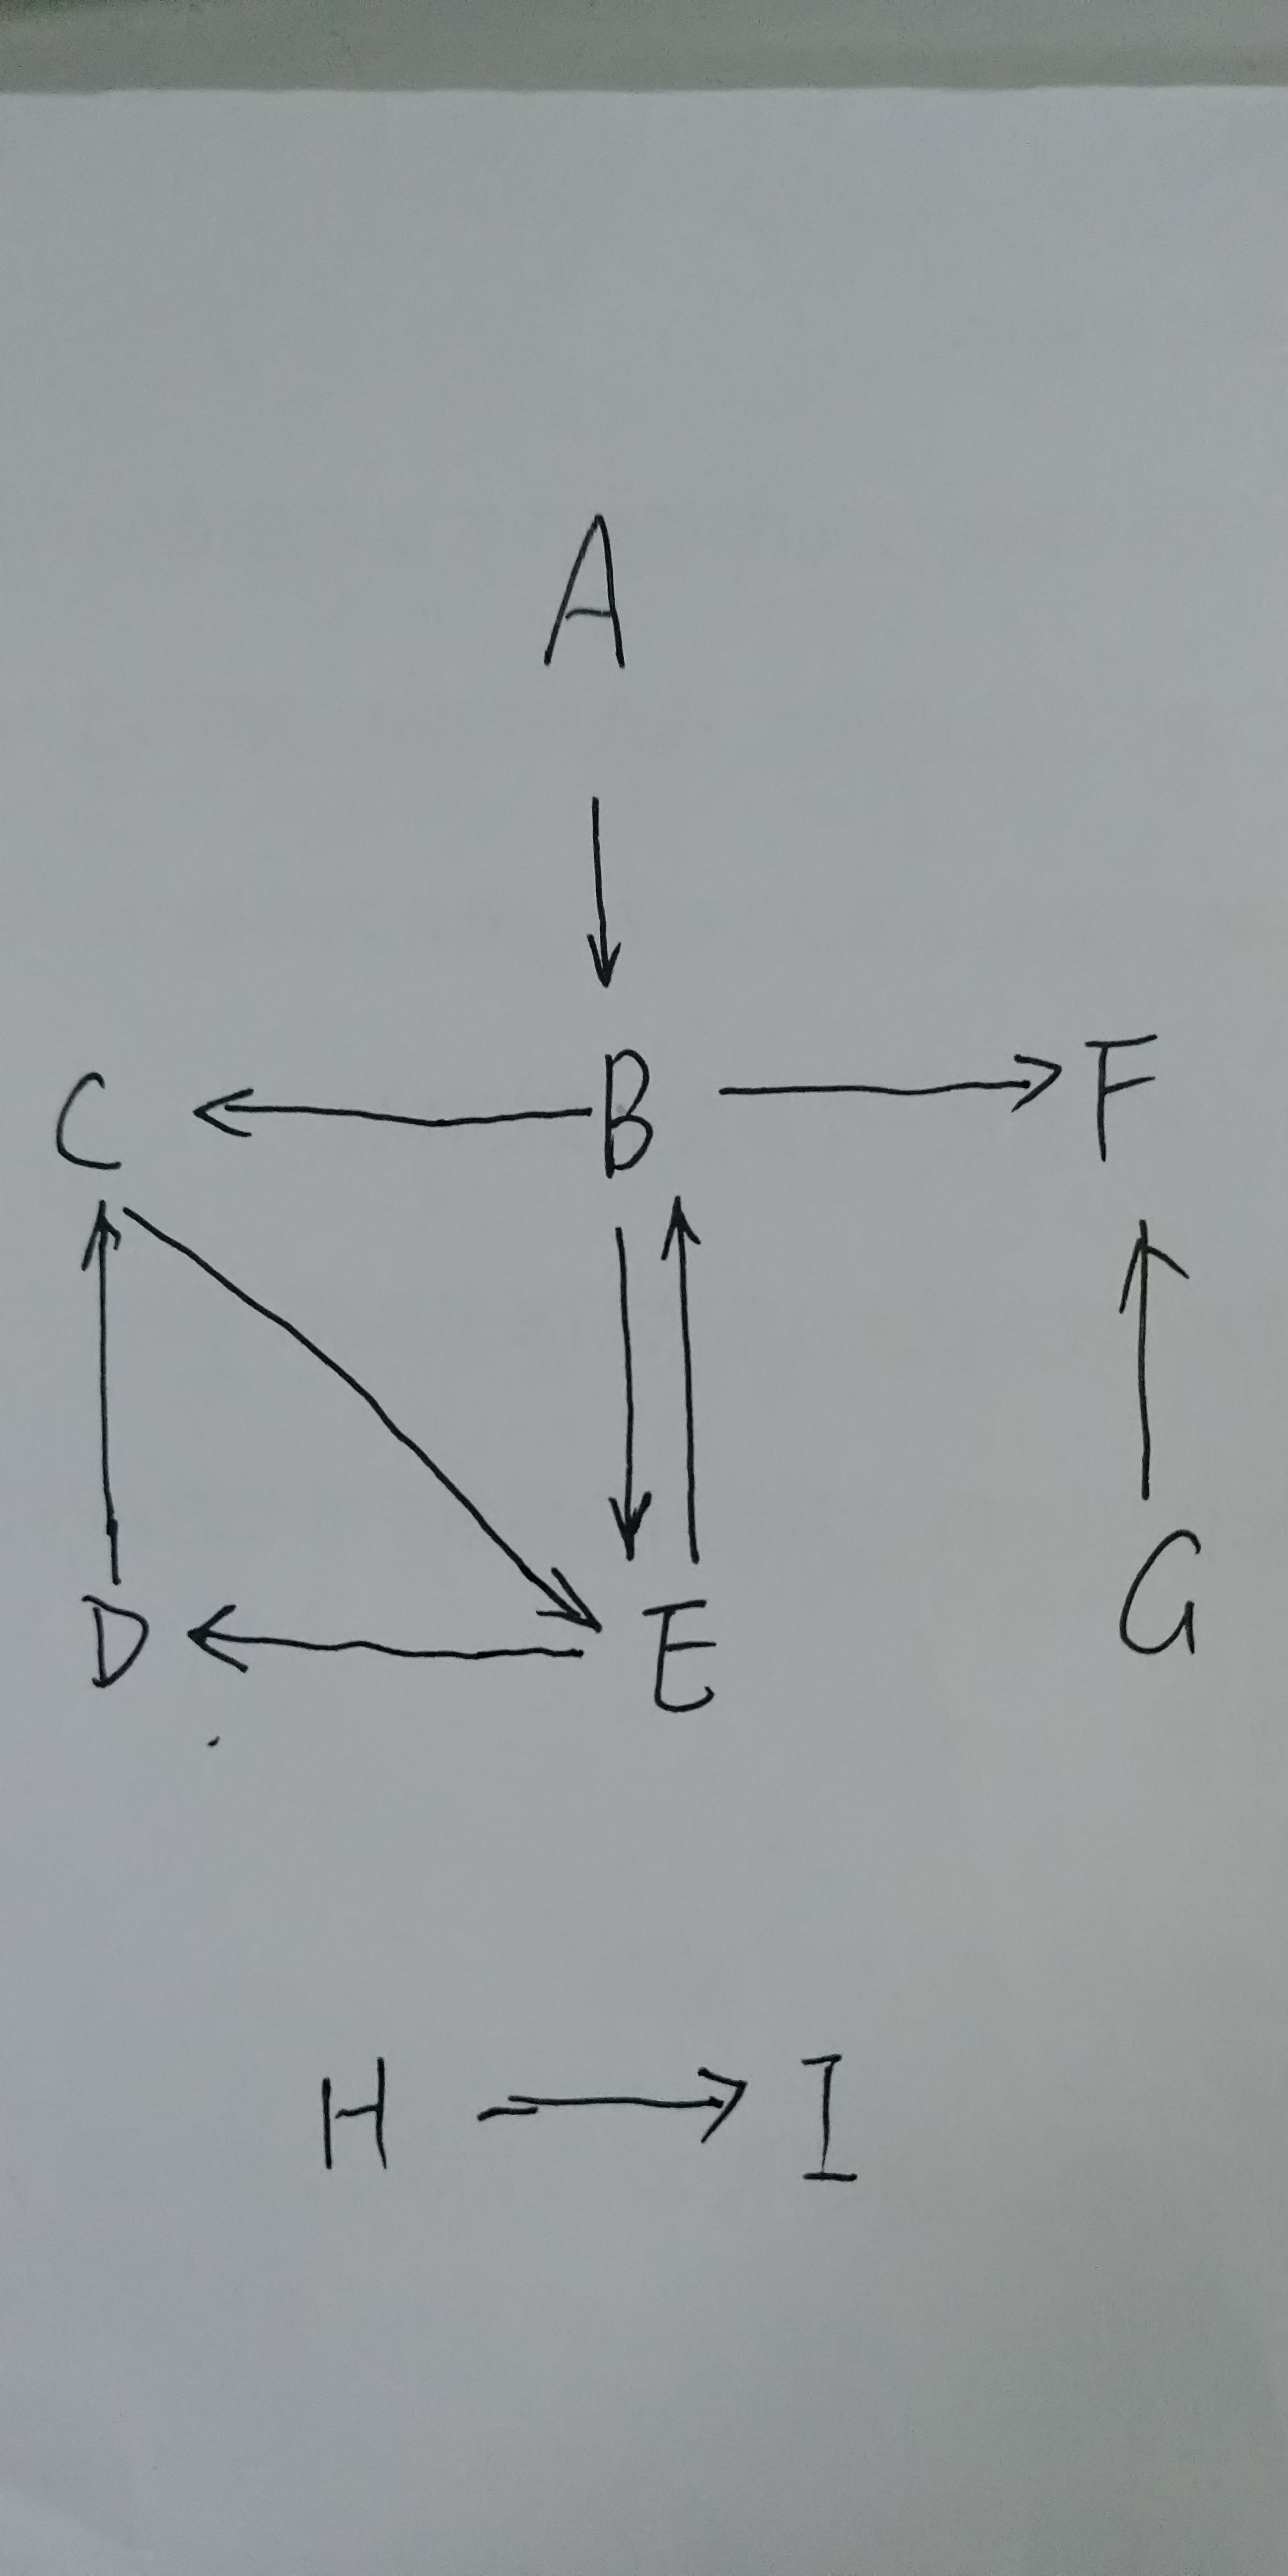 A
C B F
D E G
H I